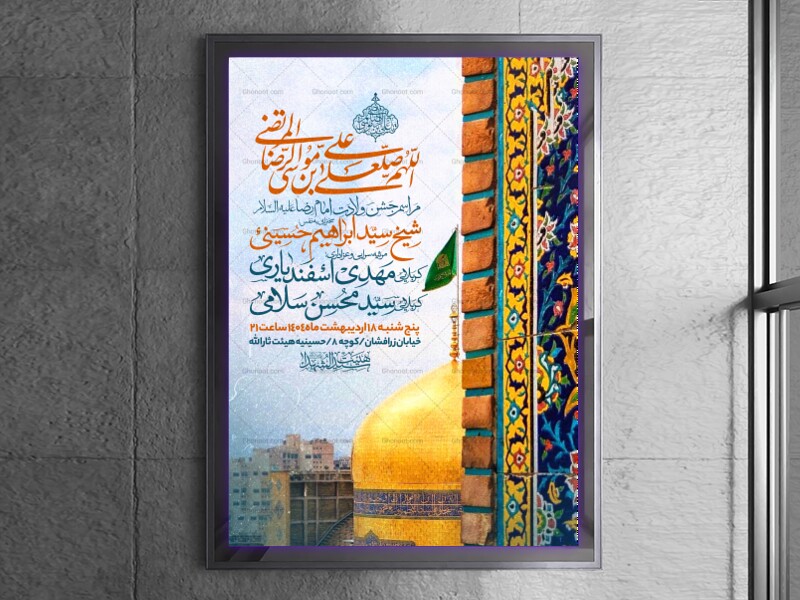 اللهم صل علی علی بن موسی الرضا المرتضی
مراسم جشن ولادت امام رضا علیه السلام
شیخ سید ابراهیم حسینی
کربلایی مهدی اسفندیاری
کربلایی سید محسن سلامی
پنج شنبه ۱۸ اردیبهشت ماه ۱۴۰۴ ساعت ۲۱
خیابان زرافشان / کوچه ۸ / حسینیه هیئت ثارالله